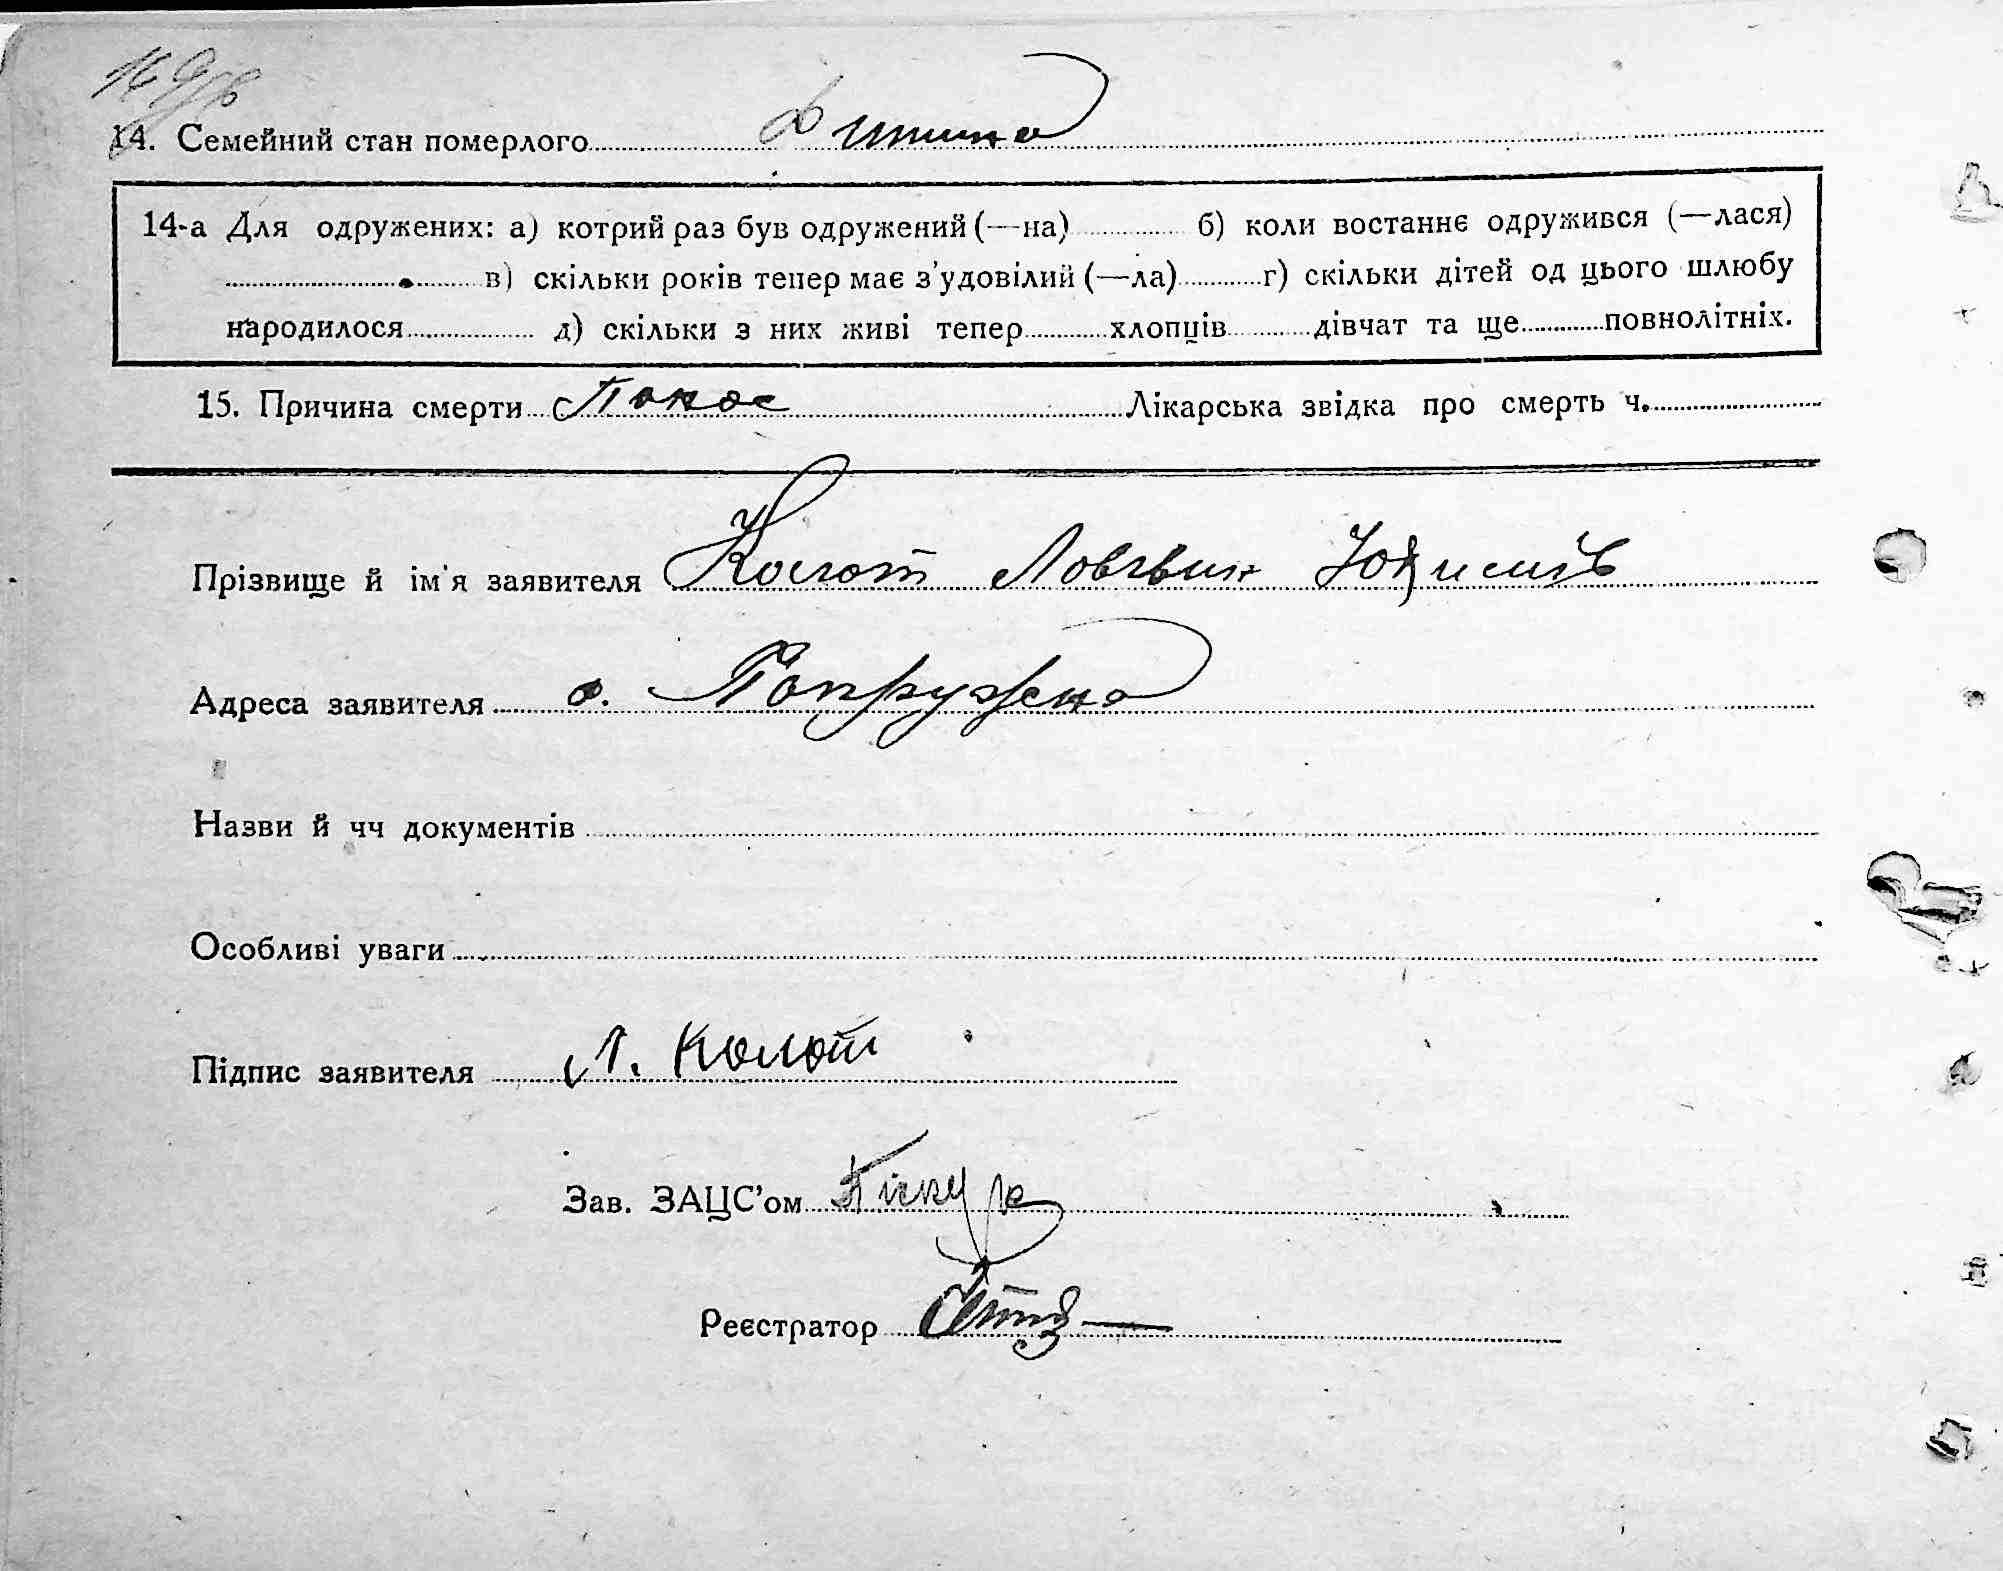 14. Семейний стан померлого Дитина
14-а Для одружених: а) котрий раз був одружений (—на) б) коли востаннє одружився (—лася)
в) скільки років тепер має з'удовілий (—ла) г) скільки дітей од цього шлюбу
народилося д) скільки з них живі тепер хлопців дівчат та ще повнолітніх.
15. Причина смерти Понос Лікарська звідка про смерть ч.
Прізвище й ім'я заявителя Колот Ловгвин
Адреса заявителя с. Попружна
Назви й чч документів
Особливі уваги
Підпис заявителя Л. Колот
Зав. ЗАЦС'ом
Реєстратор